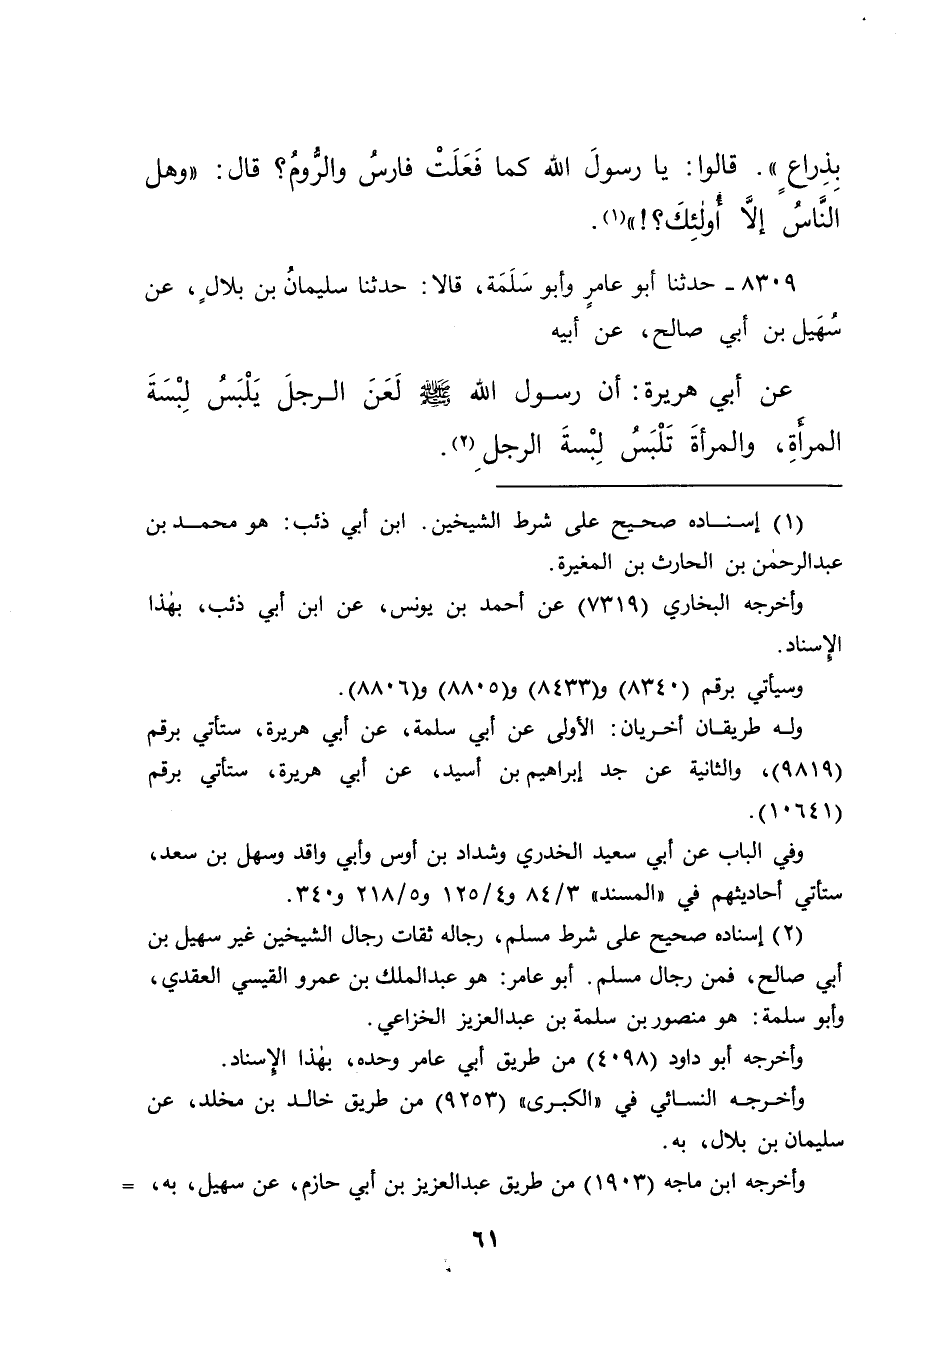 بِذِراعٍ». قالوا: يا رسولَ الله كما فَعَلَتْ فارسُ والرُّومُ؟ قال: «وهل
النَّاسُ إلَّا أُولٰئِكَ؟!»(١).
٨٣٠٩ - حدثنا أبو عامرٍ وأبو سَلَمَة، قالا: حدثنا سليمانُ بن بلالٍ، عن
سُهَيل بن أبي صالح، عن أبيه
عن أبي هريرة: أن رسول الله ﷺ لَعَنَ الرجلَ يَلْبَسُ لِبْسَةَ
المرأَةِ، والمرأةَ تَلْبَسُ لِبْسةَ الرجلِ(٢).
(١) إسناده صحيح على شرط الشيخين. ابن أبي ذئب: هو محمد بن
عبدالرحمٰن بن الحارث بن المغيرة.
وأخرجه البخاري (٧٣١٩) عن أحمد بن يونس، عن ابن أبي ذئب، بهٰذا
الإسناد.
وسيأتي برقم (٨٣٤٠) و(٨٤٣٣) و(٨٨٠٥) و(٨٨٠٦).
وله طريقان أخريان: الأولى عن أبي سلمة، عن أبي هريرة، ستأتي برقم
(٩٨١٩)، والثانية عن جد إبراهيم بن أسيد، عن أبي هريرة، ستأتي برقم
(١٠٦٤١).
وفي الباب عن أبي سعيد الخدري وشداد بن أوس وأبي واقد وسهل بن سعد،
ستأتي أحاديثهم في «المسند» ٨٤/٣ و١٢٥/٤ و٢١٨/٥ و٣٤٠.
(٢) إسناده صحيح على شرط مسلم، رجاله ثقات رجال الشيخين غير سهيل بن
أبي صالح، فمن رجال مسلم. أبو عامر: هو عبدالملك بن عمرو القيسي العقدي،
وأبو سلمة: هو منصور بن سلمة بن عبدالعزيز الخزاعي.
وأخرجه أبو داود (٤٠٩٨) من طريق أبي عامر وحده، بهٰذا الإسناد.
وأخرجه النسائي في «الكبرى» (٩٢٥٣) من طريق خالد بن مخلد، عن
سليمان بن بلال، به.
وأخرجه ابن ماجه (١٩٠٣) من طريق عبدالعزيز بن أبي حازم، عن سهيل، به، =
٦١